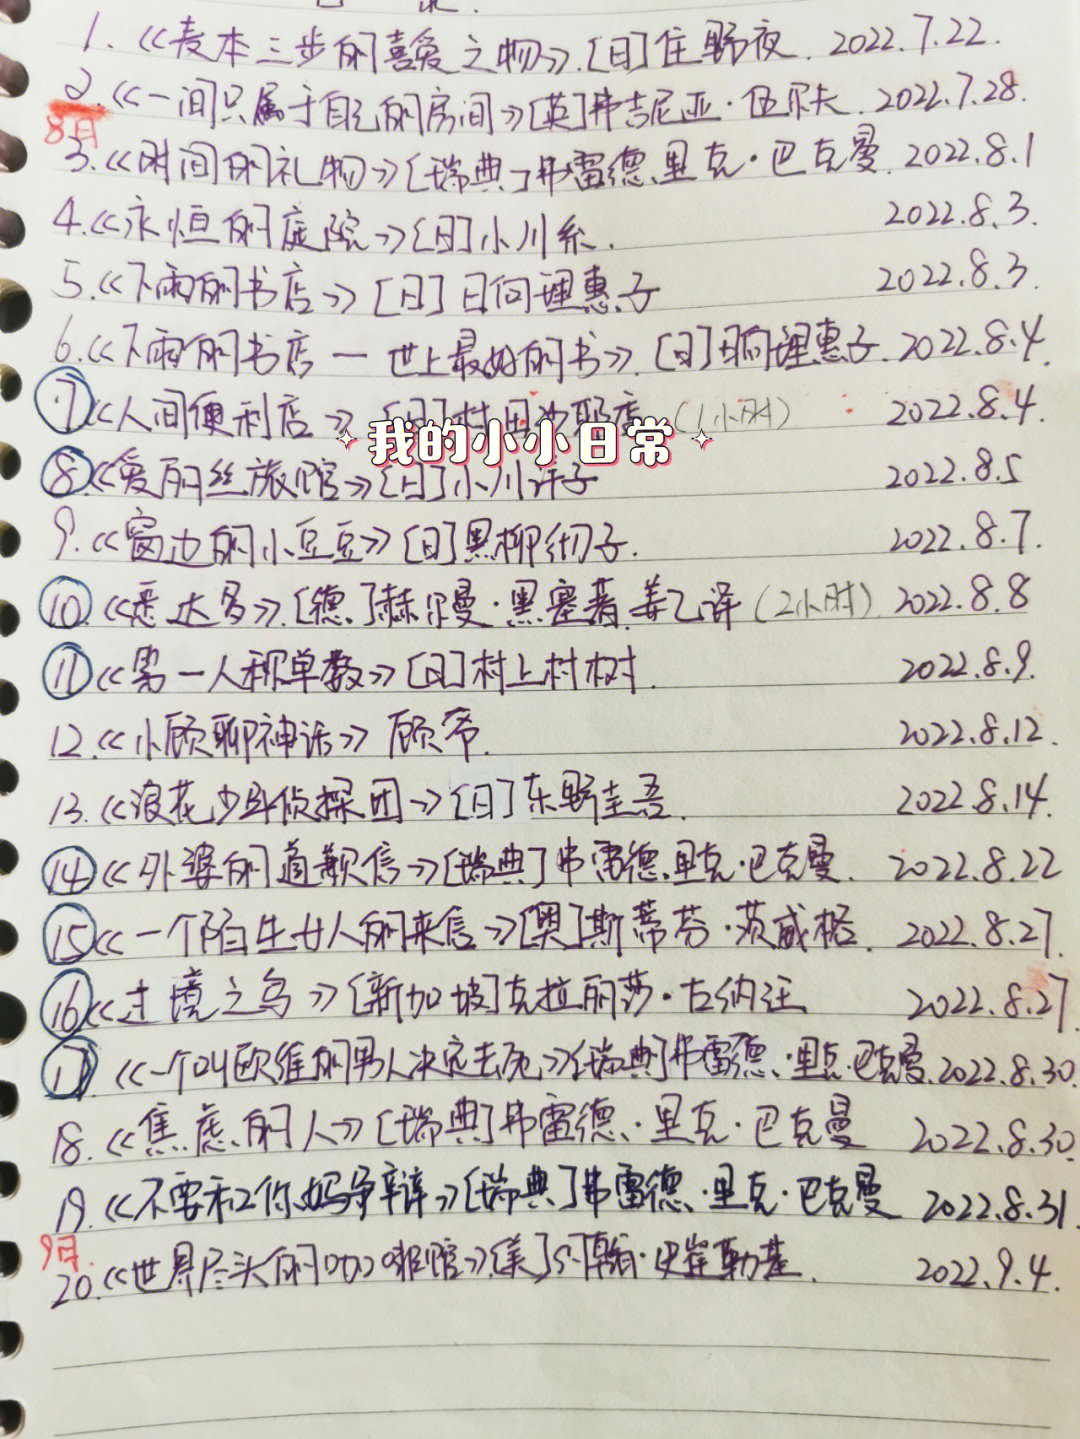 1.《麦本三步的喜爱之物》.[日]住野夜. 2022.7.22.
2.《一间只属于自己的房间》[英]弗吉尼亚·伍尔夫. 2022.7.28.
8月
3.《时间的礼物》[瑞典]弗雷德里克·巴克曼. 2022.8.1
4.《永恒的庭院》[日]小川糸. 2022.8.3.
5.《下雨的书店》[日]日向理惠子 2022.8.3.
6.《下雨的书店—世上最好的书》.[日]日向理惠子. 2022.8.4.
7《人间便利店》[日]村田沙耶香(1小时) 2022.8.4.
我的小小日常
8《爱丽丝旅馆》[日]小川 2022.8.5
9.《窗边的小豆豆》[日]黑柳彻子. 2022.8.7.
10.《悉达多》.[德]赫尔曼·黑塞著.姜乙译(2小时) 2022.8.8
11《第一人称单数》[日]村上村树. 2022.8.9.
12.《小顾聊神话》顾爷. 2022.8.12.
13.《浪花少年侦探团》[日]东野圭吾. 2022.8.14.
14《外婆的道歉信》[瑞典]弗雷德里克·巴克曼. 2022.8.22
15《一个陌生女人的来信》[奥]斯蒂芬·茨威格. 2022.8.27.
16《过境之鸟》[新加坡]克拉丽莎·古纳汪 2022.8.27.
17《一个叫欧维的男人决定去死》[瑞典]弗雷德里克·巴克曼.2022.8.30.
18.《焦虑的人》[瑞典]弗雷德·里克·巴克曼 2022.8.30.
19.《不要和你妈争辩》[瑞典]弗雷德·里克·巴克曼 2022.8.31.
9月
20.《世界尽头的咖啡馆》[美]约翰·史崔勒基. 2022.9.4.